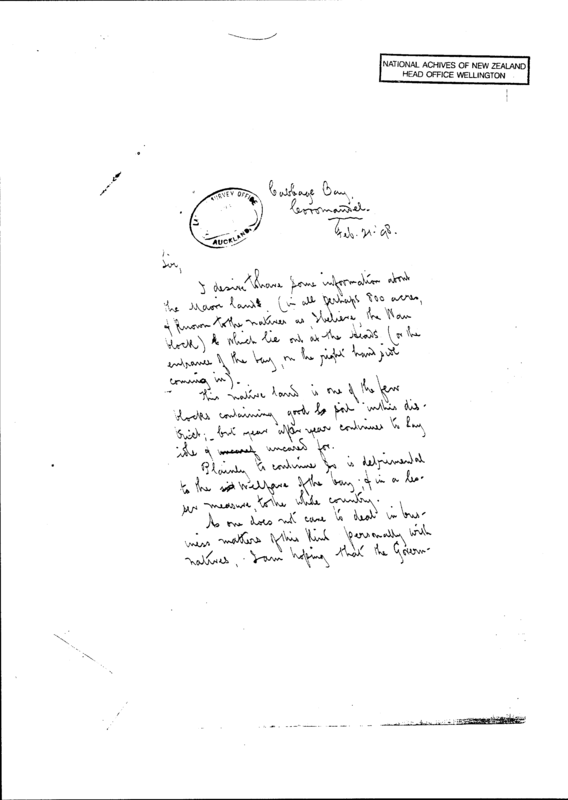 NATIONAL ACHIVES OF NEW ZEALAND
HEAD OFFICE WELLINGTON
SURVEY OFFICE
AUCKLAND.
Cabbage Bay,
Coromandel.
Feb. 21. 98.
Sir,
I desire to have some information about
the Maori lands (in all perhaps 800 acres,
& known to the natives as I believe, the
block) which lie out at the Heads (or the
entrance of the bay, on the right hand
coming in).
This native land is one of the few
blocks containing good soil in this dis-
trict, but year after year continues to lay
idle & uncared for.
Plainly to continue so is detrimental
to the welfare of the bay; & in a les-
ser measure, to the whole country.
As one does not care to deal in bus-
iness matters of this kind personally with
natives, I am hoping that the Govern-